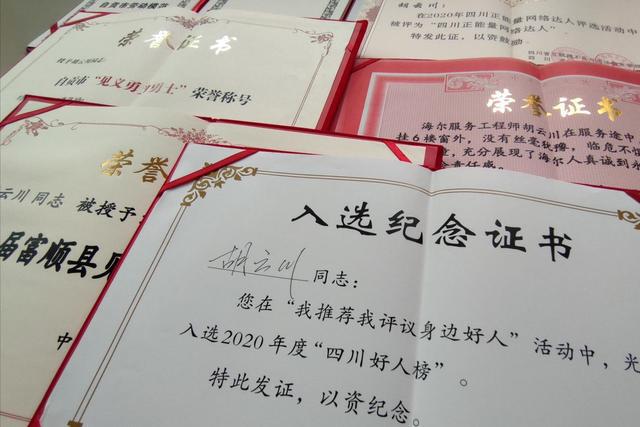 自贡市劳动模范
胡云川：
在2020年四川正能量网络达人评选活动中
被评为“四川正能量网络达人”
特发此证，以资鼓励。
荣誉证书
授予胡云川同志
自贡市“见义勇为勇士”荣誉称号
荣誉证书
海尔服务工程师胡云川在服务途中
挂6楼窗外，没有丝毫犹豫，临危不惧
充分展现了海尔人真诚到永
责任感。
荣誉
云川同志 被授予
届富顺县见
中
入选纪念证书
胡云川 同志：
您在“我推荐我评议身边好人”活动中，光
入选2020年度“四川好人榜”。
特此发证，以资纪念。